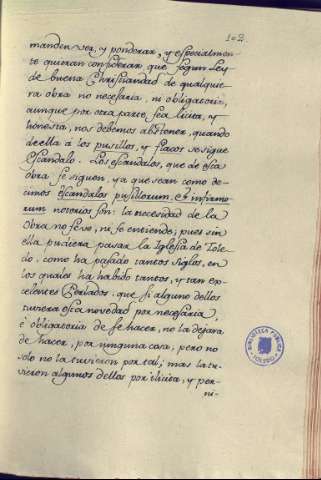 102
manden ver, y ponderar, y especialmen-
te quieran considerar que segun Ley
de buena Christiandad de qualquie-
ra obra no necesaria, ni obligatoria,
aunque por otra parte sea licita, y
honesta, nos debemos abstener, quando
de ella à los pusillos, y flacos se sigue
Escandalo. Los escandalos, que de esta
obra se siguen, ya que sean como de-
cimos escandalos pusillorum, et infirmo-
rum notorios son: la necesidad de la
Obra no se ve, ni se entiende; pues sin
ella pudiera pasar la Iglesia de Tole-
do, como ha pasado tantos siglos, en
los quales ha habido tantos, y tan exc-
elentes Perlados, que si alguno dellos
tuviera esta novedad por necesaria,
è obligatoria de se hacer, no la dejara
de hacer, por ninguna cosa; pero no
solo no la tuvieron por tal; mas la tu-
vieron algunos dellos por ilicita, y per-
ni-
BIBLIOTECA PUBLICA
TOLEDO